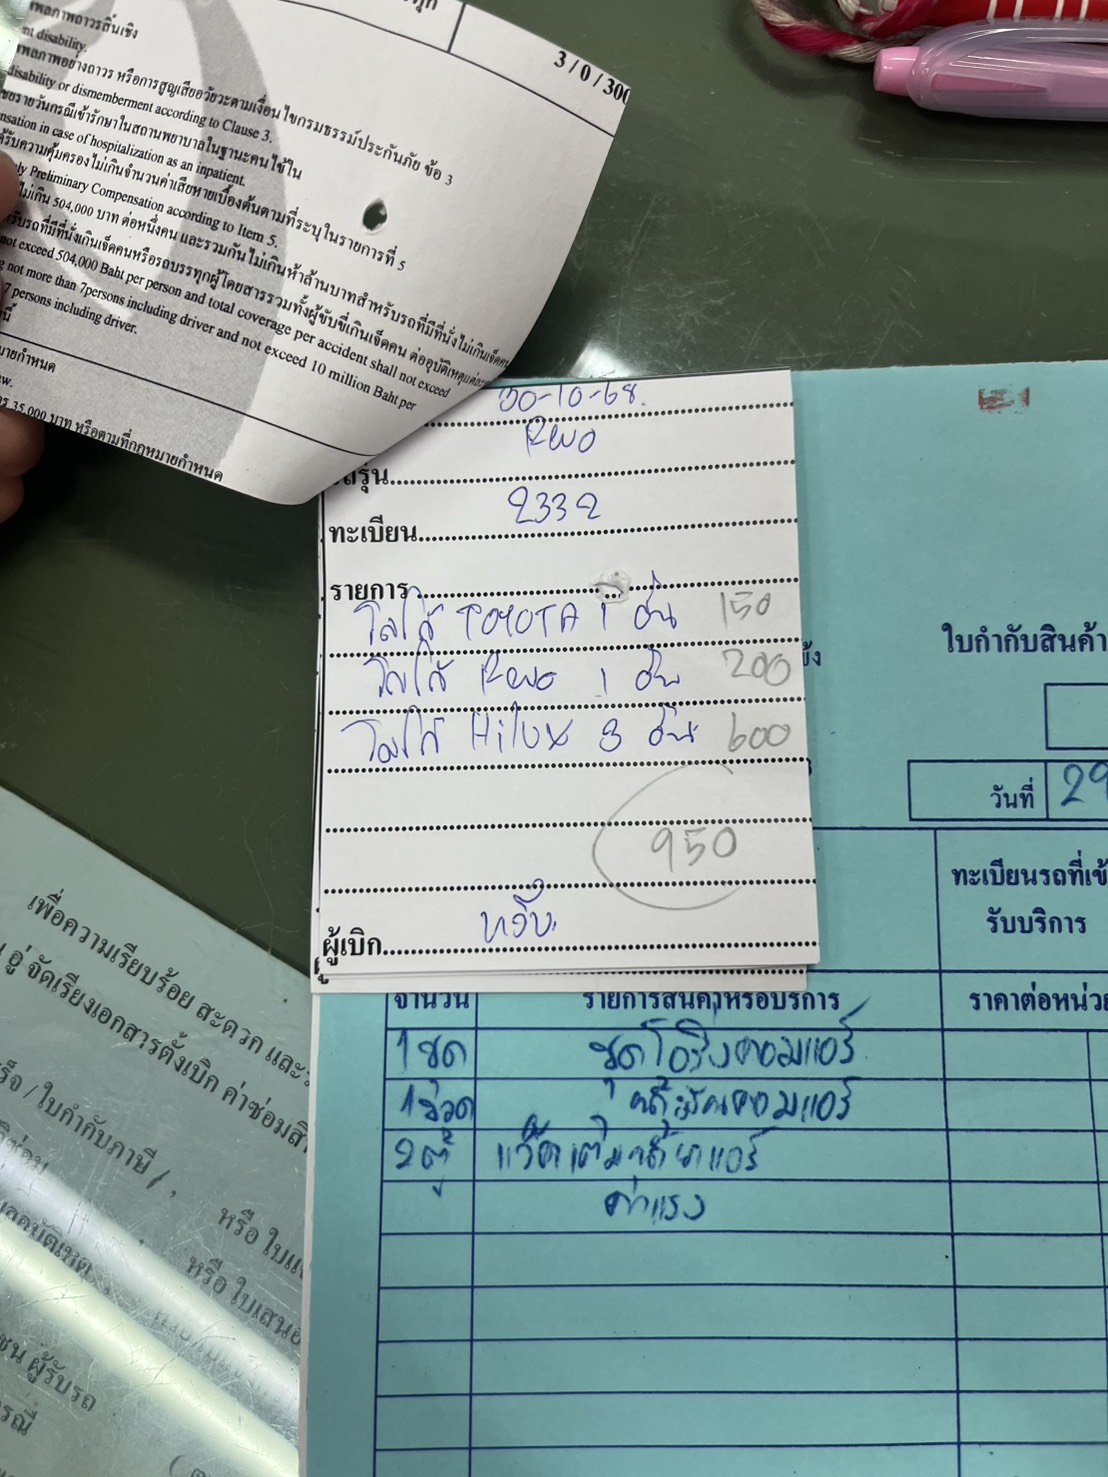 3 / 0 / 300
nt disability.
เพลภาพอย่างถาวร หรือการสูญเสียอวัยวะตามเงื่อนไขกรมธรรม์ประกันภัย ข้อ 3
disability or dismemberment according to Clause 3.
ชยรายวันกรณีเข้ารักษาในสถานพยาบาลในฐานะคนไข้ใน
nsation in case of hospitalization as an inpatient.
ด้รับความคุ้มครองไม่เกินจำนวนค่าเสียหายเบื้องต้นตามที่ระบุในรายการที่ 5
ly Preliminary Compensation according to Item 5.
ไม่เกิน 504,000 บาท ต่อหนึ่งคน และรวมกันไม่เกินห้าล้านบาทสำหรับรถที่มีที่นั่งไม่เกินเจ็ดคน
รับรถที่มีที่นั่งเกินเจ็ดคนหรือรถบรรทุกผู้โดยสารรวมทั้งผู้ขับขี่เกินเจ็ดคน ต่ออุบัติเหตุแต่ละ
not exceed 504,000 Baht per person and total coverage per accident shall not exceed
g not more than 7persons including driver and not exceed 10 million Baht per
7 persons including driver.
มายกำหนด
aw.
ร 35,000 บาท หรือตามที่กฎหมายกำหนด
30-10-68.
Revo
ถรุ่น
ทะเบียน 2332
รายการ
โลโก้ TOYOTA 1 อัน 150
โลโก้ Revo 1 อัน 200
โลโก้ Hilux 3 อัน 600
950
ผู้เบิก
ใบกำกับสินค้า
วันที่ 29
ทะเบียนรถที่เข้า
รับบริการ
จำนวน รายการสินค้าหรือบริการ ราคาต่อหน่วย
1 ชุด ชุดโอริงคอมแอร์
1 ขวด คอมแอร์
2 ตู้ แว๊คเติมน้ำยาแอร์
ค่าแรง
เพื่อความเรียบร้อย สะดวก และ
อู่ จัดเรียงเอกสารตั้งเบิก ค่าซ่อมสิ
ร็จ / ใบกำกับภาษี /
หรือ ใบแ
หรือ ใบเสนอ
ผู้รับรถ